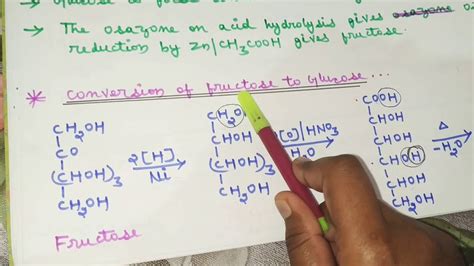 → The osazone on acid hydrolysis gives
reduction by Zn/CH₃COOH gives fructose.
* Conversion of fructose to Glucose ...
CH₂OH
CO
(CHOH)₃
CH₂OH
2[H]
Ni
CH₂O
CHOH
(CHOH)₃
CH₂OH
[O]/HNO₃
H₂O
COOH
CHOH
CHOH
CHOH
CHOH
CH₂OH
Δ
-H₂O
Fructose